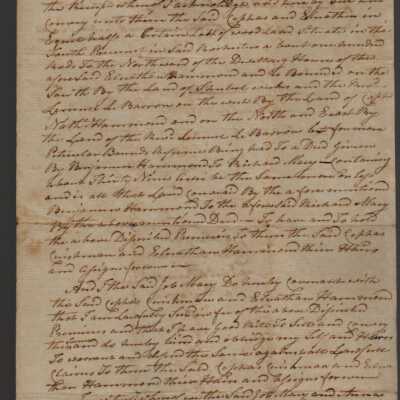 the Receipt whereof I acknowledge and have by
convey unto them the Said Cephas and Elnathan in
Equal halfs a Certain Lott of wood Land Situate in the
South Precinct in Said a bout one hundred
Rods To the Northward of the Dwelling House of the
afore Said Elnathan Hammond and is Bounded on the
South By the Land of and the Revd
Lemuel Le Barron on the west By the Land of Capt
Nathl Hammond and on the North and East By
the Land of the Revd Lemuel Le Barron for more
Peticular Bounds Referance Being had To a Deed Given
By Benjamin Hammond To Michael Mary Containing
about Thirty Nine acres be the Same more or less
and is all that Land convaied By the a fore mentioned
Benjamin Hammond To the afore Said Michael Mary
By the above mentioned Deed To have and To hold
the above Discribed Premises To them the Said Cephas
Cushman and Elnathan Hammond their Heirs
and assigns forever
And I the Said Job Mary Do hereby covenant with
the Said Cephas Cushman and Elnathan Hammond
that I am Lawfully Seized in fee of the above Discribed
Premises and that I have Good Rite To Sell and convey
the and do hereby bind and oblidge my Self and Heirs
To warrant and defend the Same against all Lawfull
Claims To them the Said Cephas Cushman and Elna-
than Hammond their Heirs and assigns forever
the Said Job Mary and